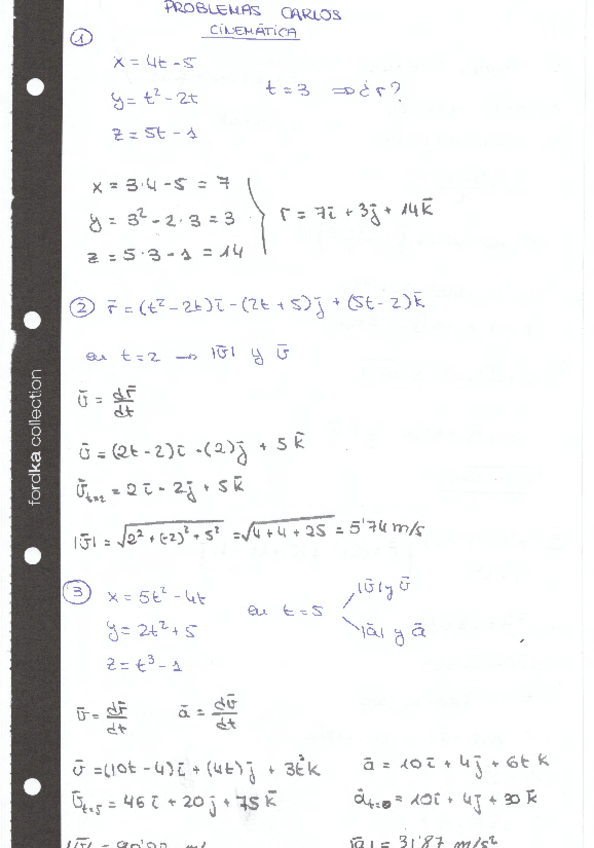 PROBLEMAS CARLOS
CINEMÁTICA
①
x = 4t - 5
y = t² - 2t
t = 3 ⇒ ¿ r̄ ?
z = 5t - 1
x = 3·4 - 5 = 7
y = 3² - 2·3 = 3
r̄ = 7ī + 3j̄ + 14k̄
z = 5·3 - 1 = 14
② r̄ = (t² - 2t)ī - (2t + 5)j̄ + (5t - 2)k̄
en t = 2 → |v̄| y v̄
v̄ = dr̄/dt
v̄ = (2t - 2)ī - (2)j̄ + 5k̄
v̄t=2 = 2ī - 2j̄ + 5k̄
|v̄| = √2² + (-2)² + 5² = √4 + 4 + 25 = 5'74 m/s
③ x = 5t² - 4t
y = 2t² + 5
z = t³ - 1
en t = 5
|v̄| y v̄
|ā| y ā
v̄ = dr̄/dt ā = dv̄/dt
v̄ = (10t - 4)ī + (4t)j̄ + 3t²k ā = 10ī + 4j̄ + 6t k
v̄t=5 = 46ī + 20j̄ + 75k̄ = 10ī + 4j̄ + 30k̄
|ā| = 31'87 m/s²
fordka collection